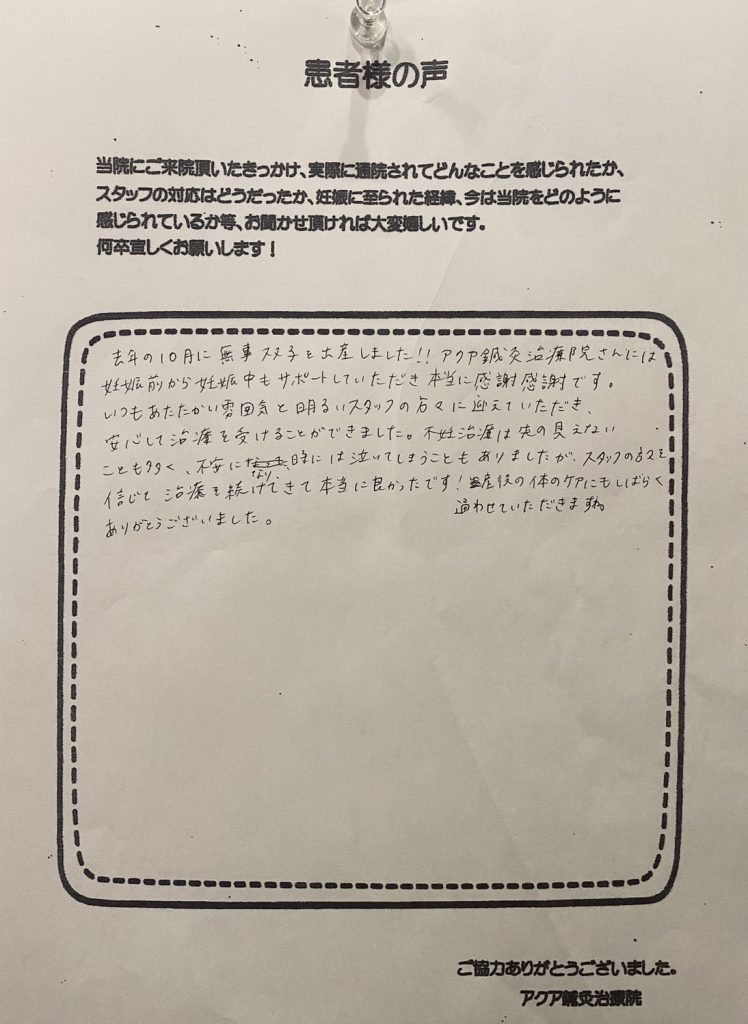 患者様の声
当院にご来院頂いたきっかけ、実際に通院されてどんなことを感じられたか、
スタッフの対応はどうだったか、妊娠に至られた経緯、今は当院をどのように
感じられているか等、お聞かせ頂ければ大変嬉しいです。
何卒宜しくお願いします！
去年の10月に無事双子を出産しました!! アクア鍼灸治療院さんには
妊娠前から妊娠中もサポートしていただき本当に感謝感謝です。
いつもあたたかい雰囲気と明るいスタッフの方々に迎えていただき、
安心して治療を受けることができました。不妊治療は先の見えない
ことも多く、不安になり、時には泣いてしまうこともありましたが、スタッフの方々を
信じて治療を続けてきて本当に良かったです！産後の体のケアにもしばらく
通わせていただきますね。
ありがとうございました。
ご協力ありがとうございました。
アクア鍼灸治療院